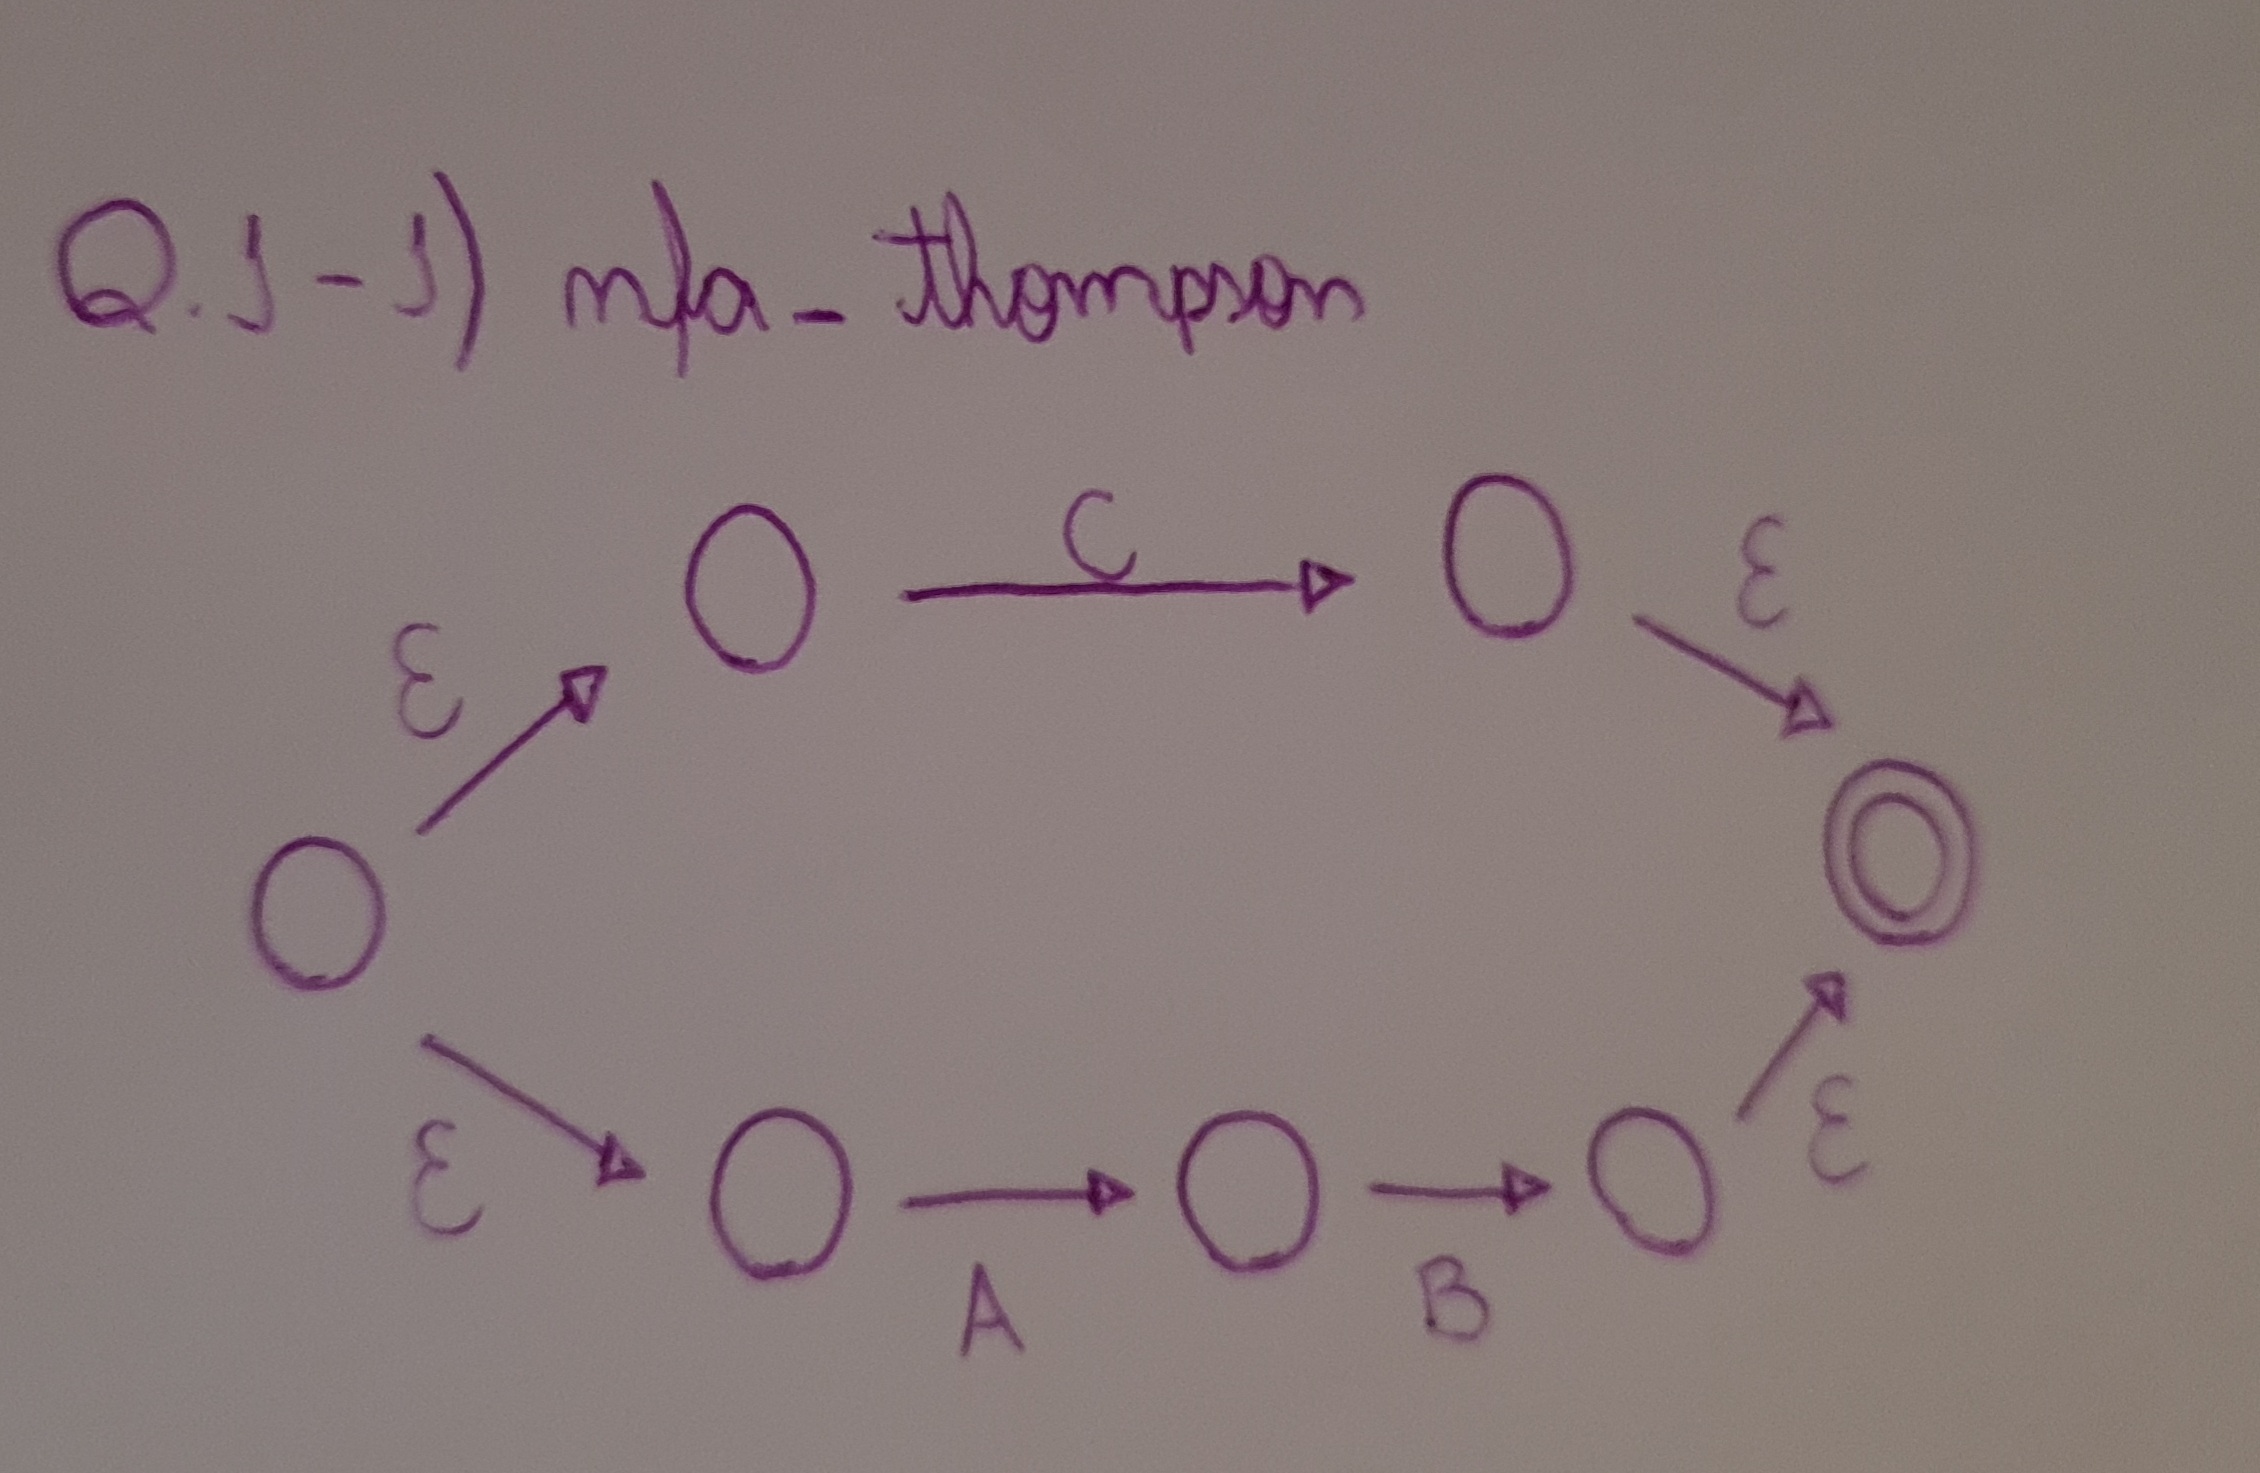 Q.1-1) nfa-thompson
C
ε
ε
ε
ε
A
B